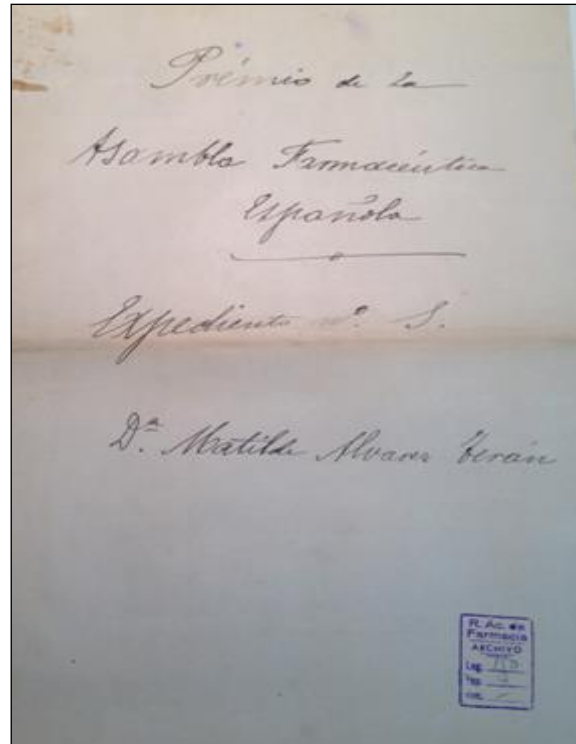 Prémio de la
Asambla Farmacéutica
Española
Expediente nº.
Dª. Matilde Alvarez Terán
R. Ac. de
Farmacia
ARCHIVO
Leg.